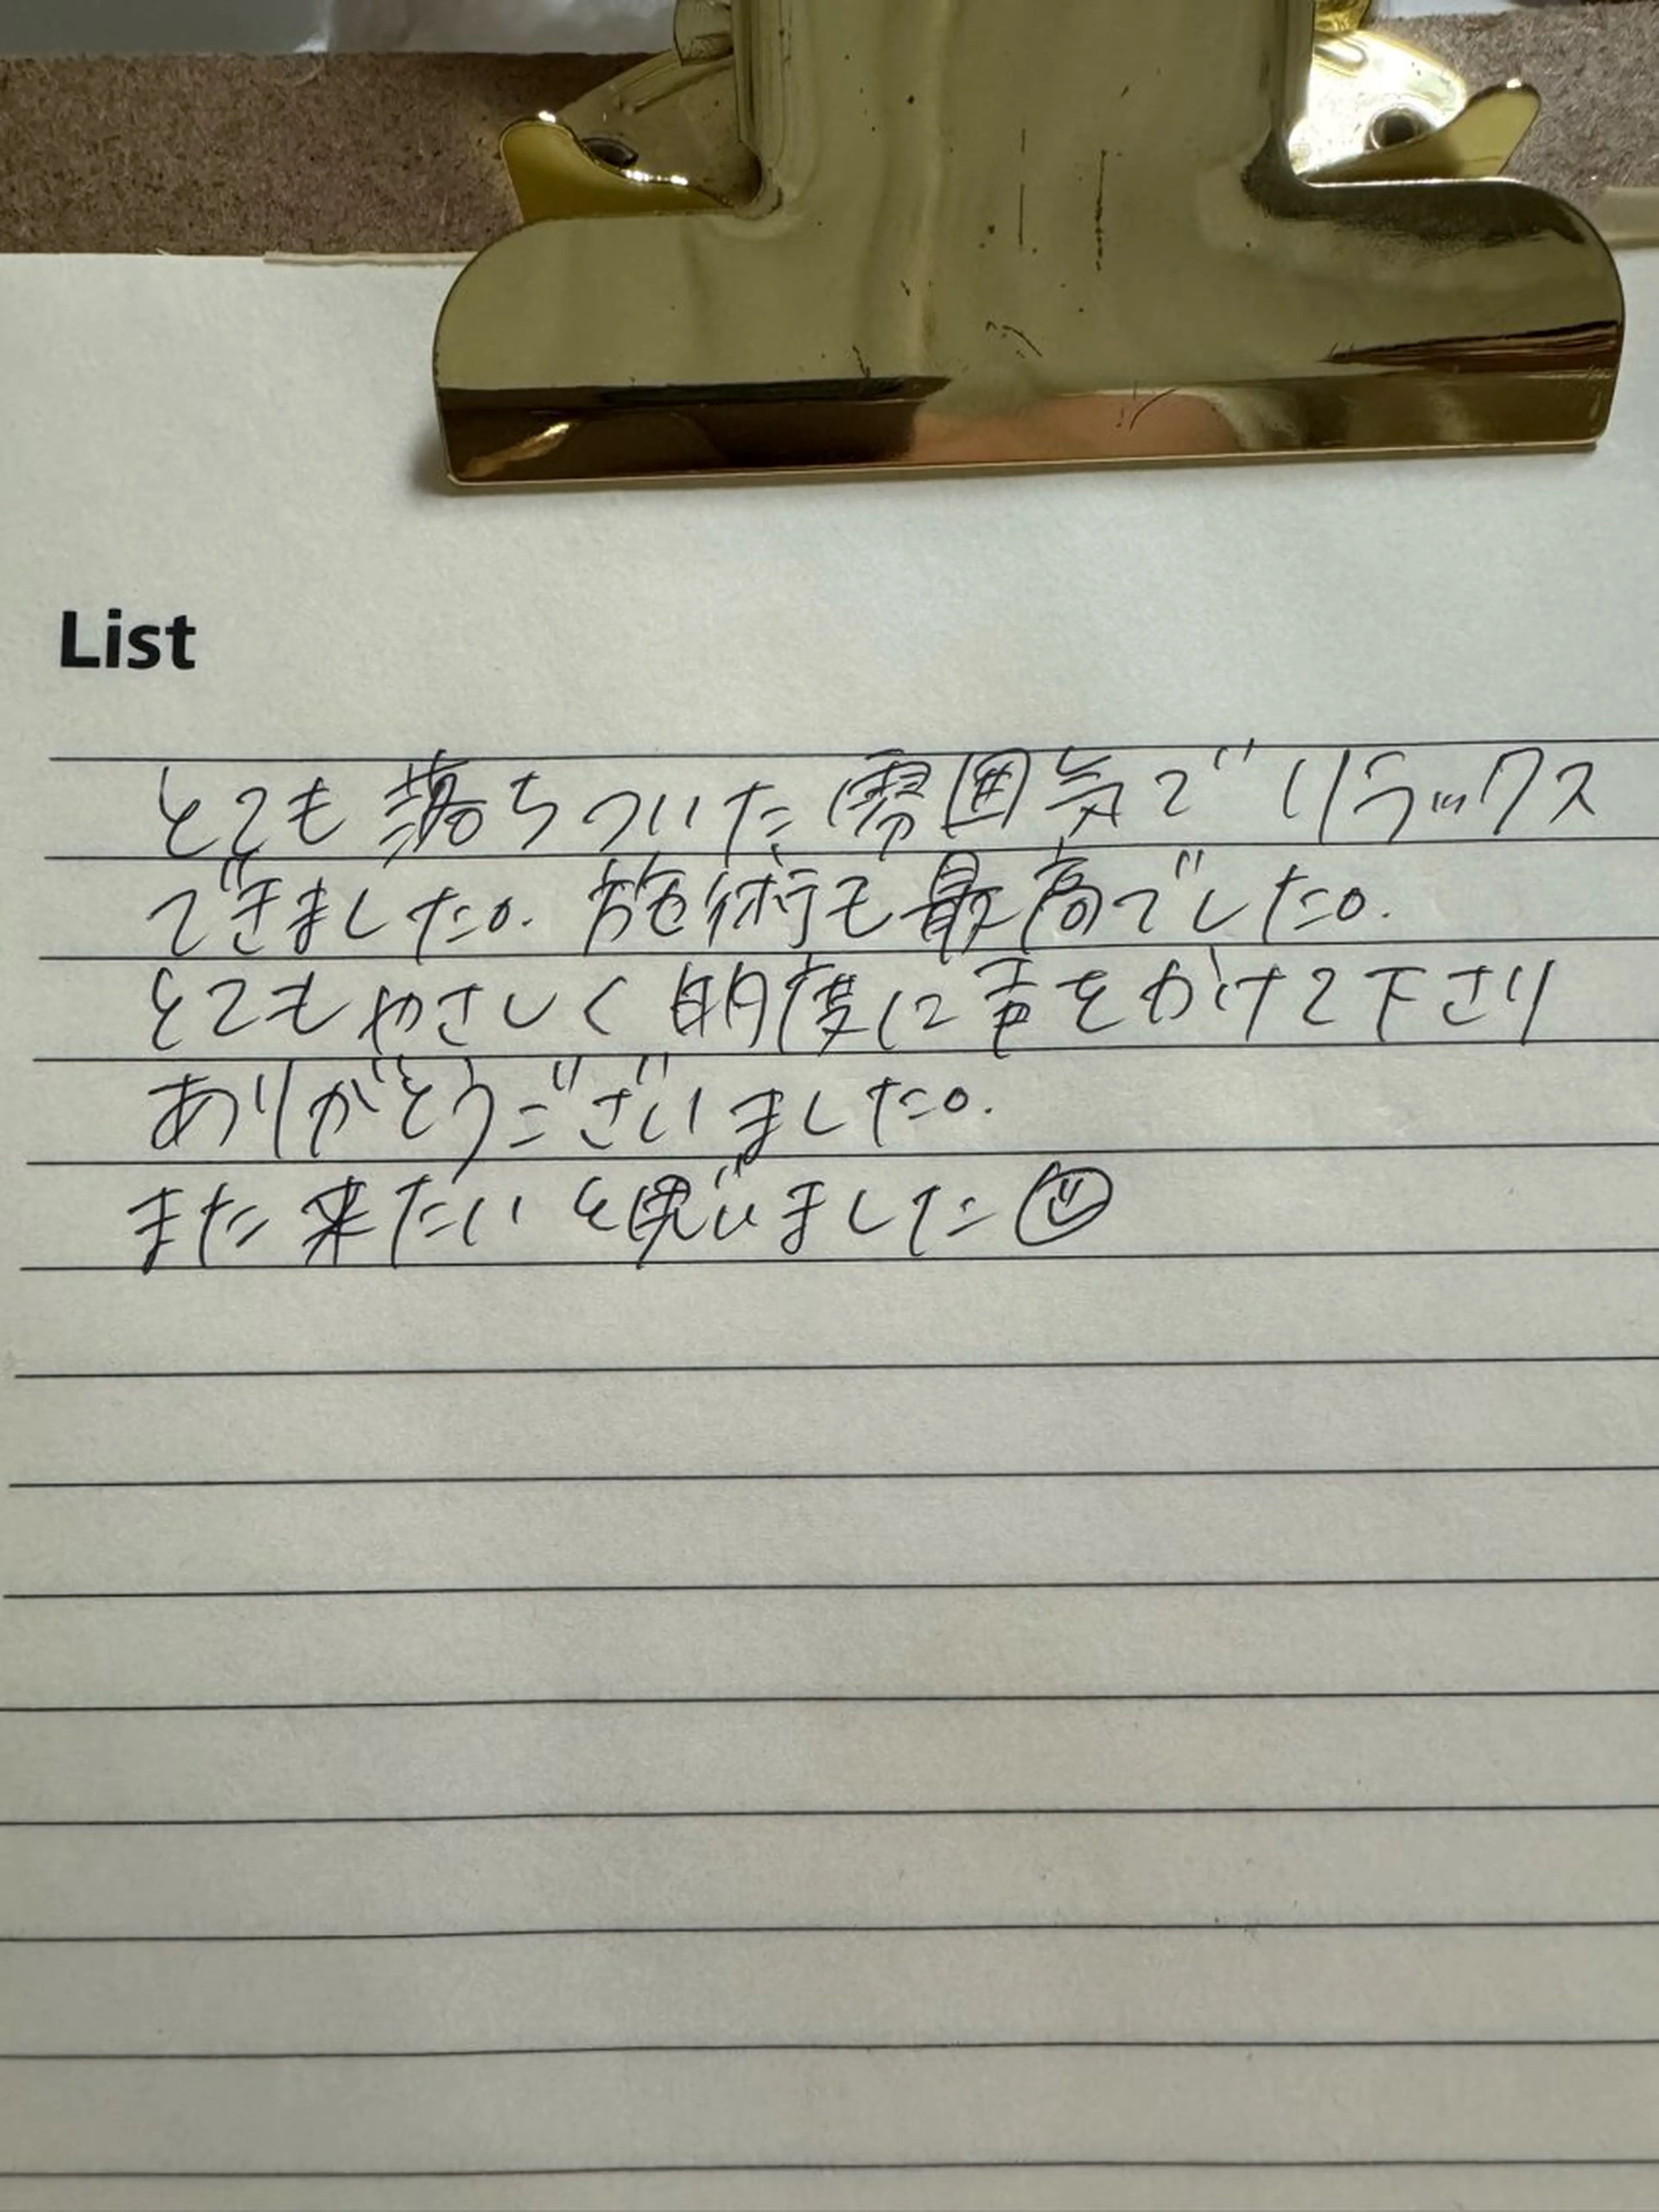 List
とても落ちついた雰囲気でリラックス
できました。施術も最高でした。
とてもやさしく明度に声をかけて下さり
ありがとうございました。
また来たいと思いました☺